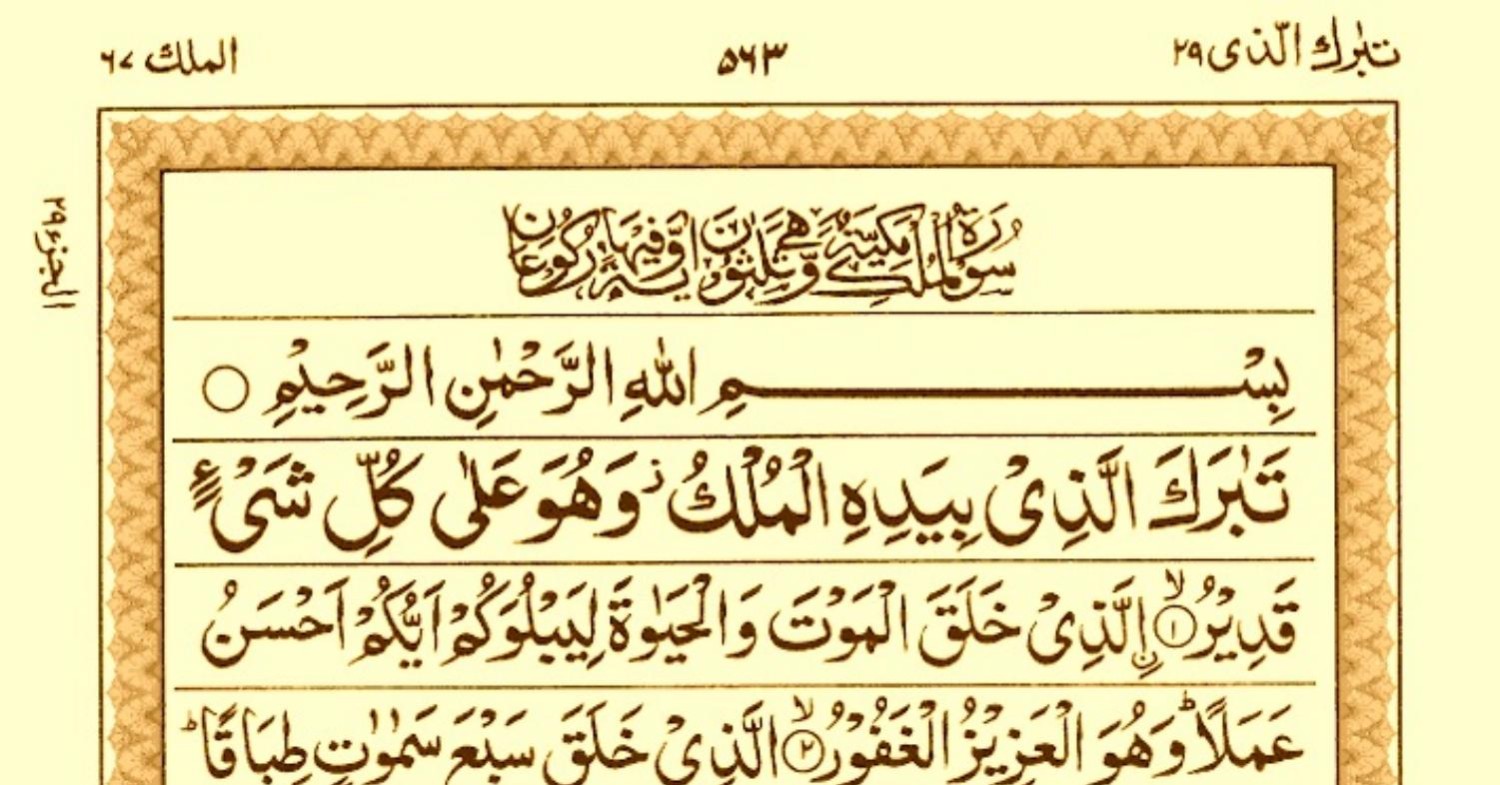 تبٰرك الّذی ۲۹
۵۶۳
الملك ۶۷
الجزء ۲۹
سُوْرَةُ الْمُلْكِ مَكِّيَّةٌ وَّهِىَ ثَلٰثُوْنَ اٰيَةً وَّفِيْهَا رُكُوْعَانِ
بِسْمِ اللّٰهِ الرَّحْمٰنِ الرَّحِيْمِ ○
تَبٰرَكَ الَّذِىْ بِيَدِهِ الْمُلْكُ ز وَهُوَ عَلٰى كُلِّ شَىْءٍ
قَدِيْرُ ۙ۝۱ اِۨلَّذِىْ خَلَقَ الْمَوْتَ وَالْحَيٰوةَ لِيَبْلُوَكُمْ اَيُّكُمْ اَحْسَنُ
عَمَلًا ؕ وَهُوَ الْعَزِيْزُ الْغَفُوْرُ ۙ۝۲ الَّذِىْ خَلَقَ سَبْعَ سَمٰوٰتٍ طِبَاقًا ؕ